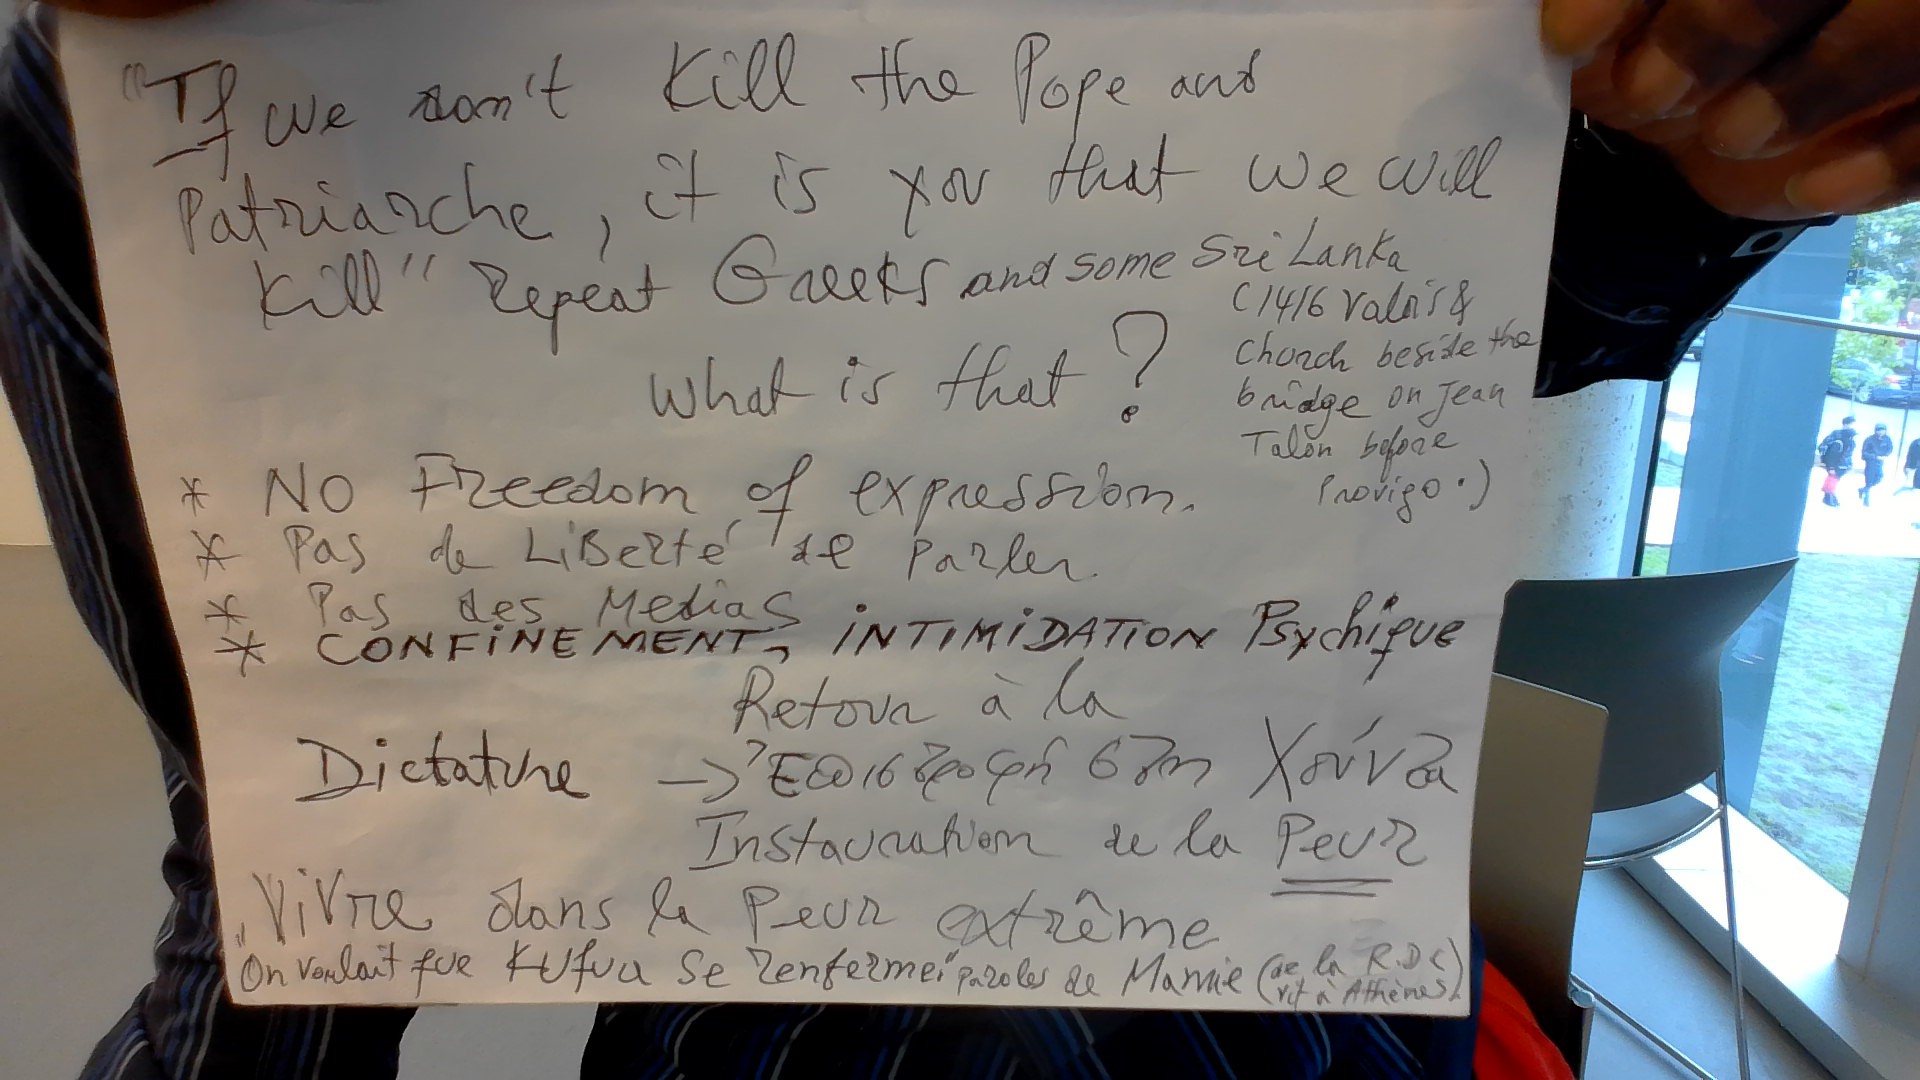 "If we don't Kill the Pope and
Patriarche, it is you that we will
Kill" repeat Greeks and some Sri Lanka
(1416 Valois &
church beside the
bridge on Jean
Talon before
Provigo.)
What is that?
* NO Freedom of expression.
* Pas de LiBerté de parler.
* Pas des Medias
* CONFiNEMENT, iNTIMiDATION Psychique
Retour à la
Dictature → Ἐπιστροφή στη Χούντα
Instauration de la Peur
Vivre dans la Peur extrême
"On voulait que Kufua se renfermei" paroles de Mamie (de la R.D.C
vit à Athènes)